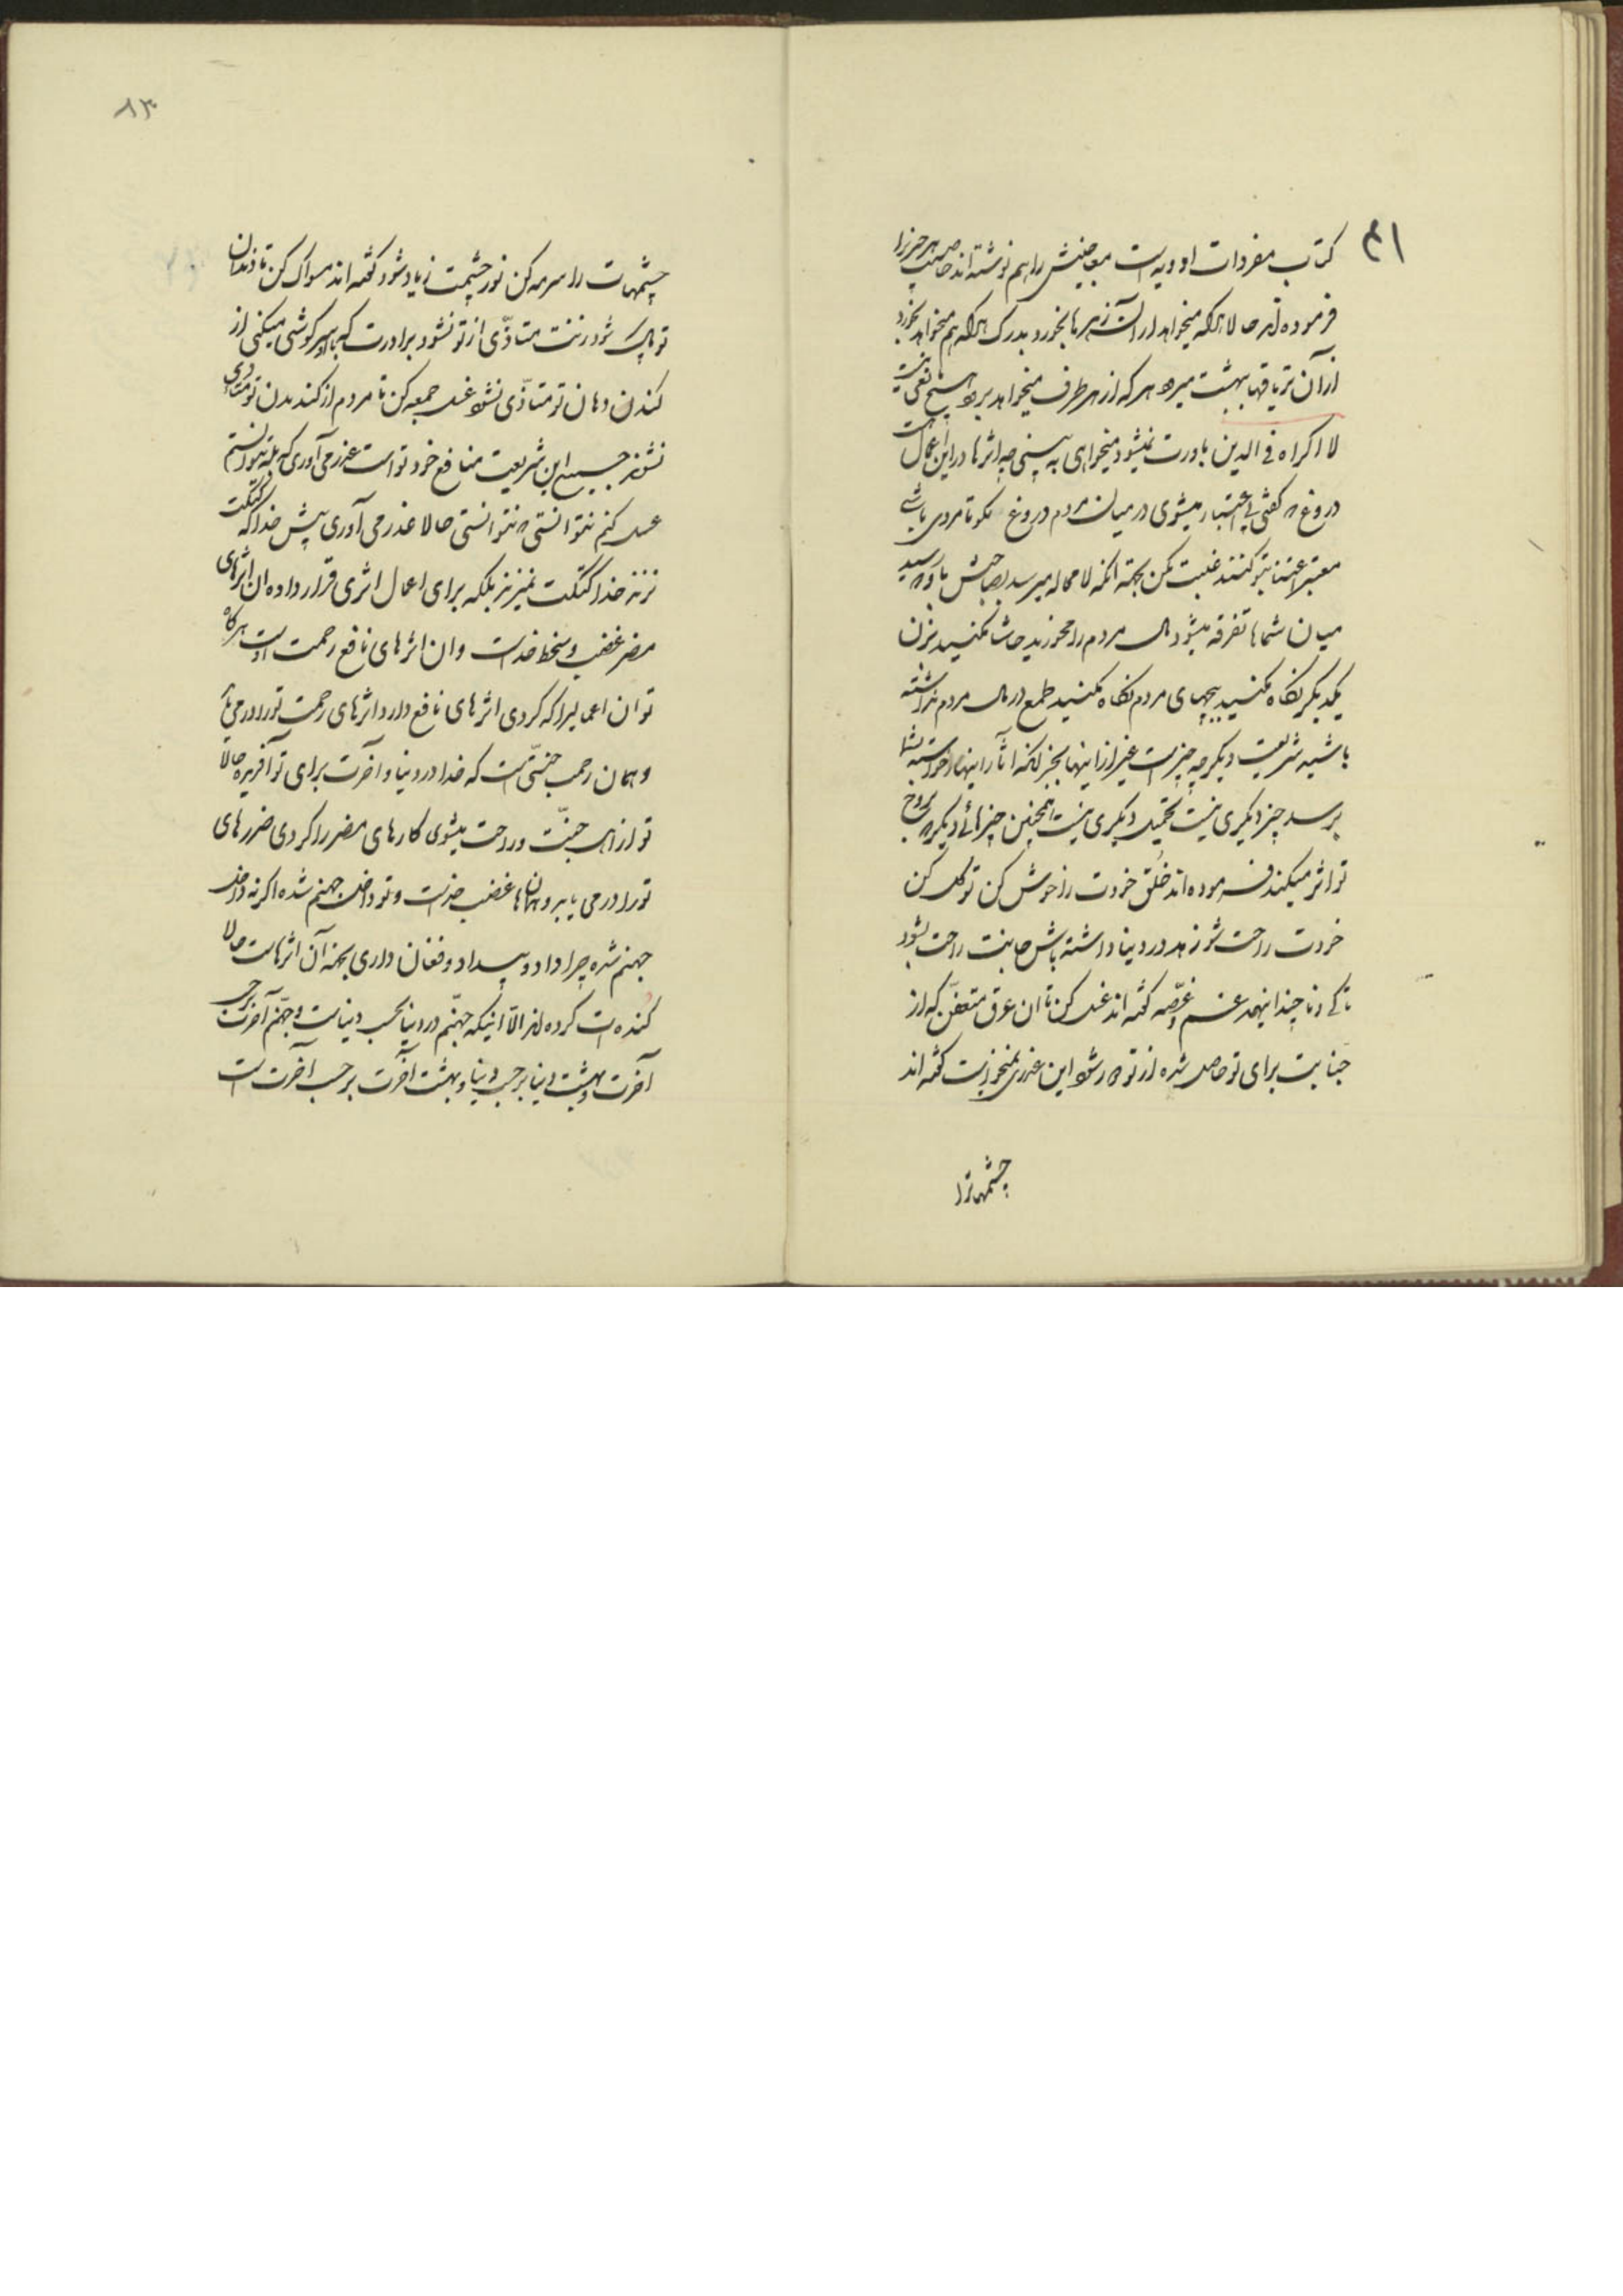 ۴۱
کتاب مفردات ادویه است معاجینش را هم نوشته اند خاصیت هر چیز را
فرموده اند حالا هر که میخواهد از آن زهرها بخورد بدرک هر که هم میخواهد بخورد
از آن تریاقها ببهشت میرود هر که از هر طرف میخواهد برود هیچ نقلی نیست
لا اکراه فی الدین باورت نمیشود میخواهی به بینی چه اثرها در این اعمال است
دروغ گفتی بی اعتبار میشوی در میان مردم دروغ مگو تا مردی باشی
معتبر اعتنا بتو کنند غیبت مکن بجهة آنکه لامحاله میرسد بصاحبش باو رسید
میان شماها تفرقه میشود مال مردم را مخورید حاشا مکنید بزن
یکدیگر نگاه مکنید ببچهای مردم نگاه مکنید طمع در مال مردم نداشته
باشید شریعت دیگر چه چیز است غیر از اینها بجز آنکه آثار اینها خود بشما
برسد چیز دیگری نیست تحمیل دیگری نیست همچنین چیزهای دیگر بروح
تو اثر میکند فرموده اند خلق خودت را خوش کن توکل کن
خودت راحت شو زهد در دنیا داشته باش جانت راحت بشود
تا کی و تا چند اینهمه غم و غصّه گفته اند غسل کن تا آن عرق متعفّن که از
جنابت برای تو حاصل شده از تو دور شود این عذری نمیخواست گفته اند
چشمهاترا
۸۳
چشمهات را سرمه کن نور چشمت زیاد شود گفته اند مسواک کن تا دندان
تو پاک شود زنت متاذّی از تو نشود برادرت که باو سرگوشی میکنی از
گندن دهان تو متاذّی نشود غسل جمعه کن تا مردم از گند بدن تو متاذی
نشوند جمیع این شریعت منافع خود تو است عذر می آوری که بله نتوانستم
غسل کنم نتوانستی نتوانستی حالا عذر می آوری پیش خدا که کتکت
نزند خدا کتکت نمیزند بلکه برای اعمال اثری قرار داده ان اثرهای
مضر غضب و سخط خداست و ان اثرهای نافع رحمت اوست هرگاه
تو ان اعمالیرا که کردی اثرهای نافع دارد اثرهای رحمت تو را در می یابد
و همان رحمت جنّتی است که خدا در دنیا و آخرت برای تو آفریده حالا
تو از اهل جنّت و راحت میشوی کارهای مضر را کردی ضررهای
تو را در می یابد و همانها غضب خداست و تو داخل جهنم شده اگر نه داخل
جهنم شده چرا داد و بیداد و فغان داری بجهة آن اثرهاست حالا
کنده ات کرده اند الّا اینکه جهنّم در دنیا بحسب دنیاست و جهنّم آخرت بر حسب
آخرت و بهشت دنیا بر حسب دنیا و بهشت آخرت بر حسب آخرت است